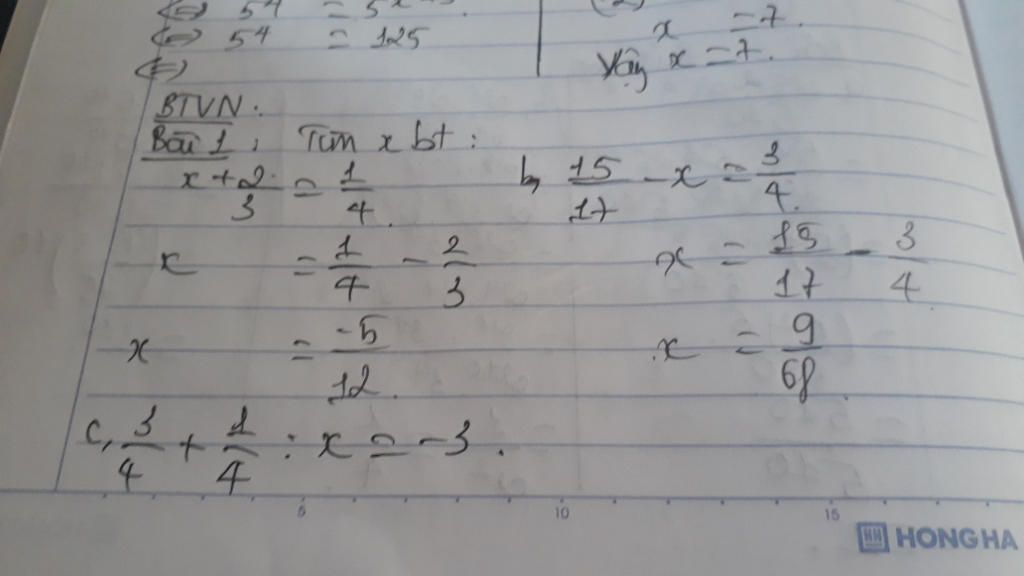 (=) 5⁴ = 5
(=) 5⁴ = 125
(=)
x = 7.
Vậy x = 7.
BTVN:
Bài 1: Tìm x bt:
x + 2/3 = 1/4.
x = 1/4 - 2/3
x = -5/12.
b, 15/17 - x = 3/4.
x = 15/17 - 3/4
x = 9/68.
c, 3/4 + 1/4 : x = -3.
5 10 15
HH HONG HA